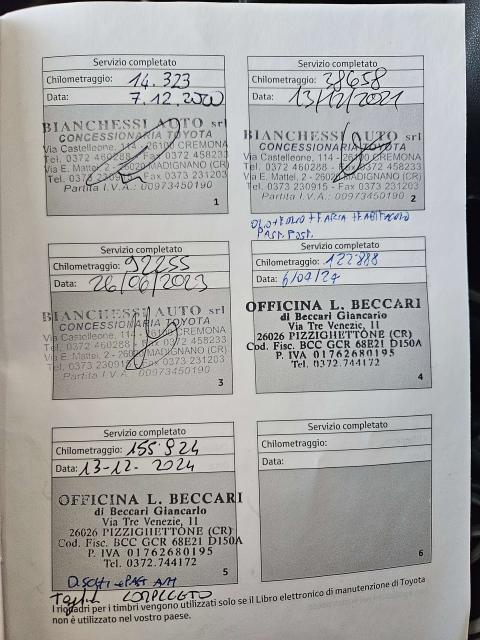 Servizio completato
Chilometraggio: 14.323
Data: 7.12.2020
BIANCHESSI AUTO srl
CONCESSIONARIA TOYOTA
Via Castelleone, 114 - 26100 CREMONA
Tel. 0372 460288 - Fax 0372 458233
Via E. Mattei, 2 - 26020 MADIGNANO (CR)
Tel. 0373 230915 - Fax 0373 231203
Partita I.V.A.: 00973450190
1
Servizio completato
Chilometraggio: 38658
Data: 13/12/2021
BIANCHESSI AUTO srl
CONCESSIONARIA TOYOTA
Via Castelleone, 114 - 26100 CREMONA
Tel. 0372 460288 - Fax 0372 458233
Via E. Mattei, 2 - 26020 MADIGNANO (CR)
Tel. 0373 230915 - Fax 0373 231203
Partita I.V.A.: 00973450190
2
Servizio completato
Chilometraggio: 92255
Data: 26/06/2023
BIANCHESSI AUTO srl
CONCESSIONARIA TOYOTA
Via Castelleone, 114 - 26100 CREMONA
Tel. 0372 460288 - Fax 0372 458233
Via E. Mattei, 2 - 26020 MADIGNANO (CR)
Tel. 0373 230915 - Fax 0373 231203
Partita I.V.A.: 00973450190
3
OLIO + F OLIO + F ARIA + F ABITACOLO
PAST. POST.
Servizio completato
Chilometraggio: 122'888
Data:
OFFICINA L. BECCARI
di Beccari Giancarlo
Via Tre Venezie, 11
26026 PIZZIGHETTONE (CR)
Cod. Fisc. BCC GCR 68E21 D150A
P. IVA 01762680195
Tel. 0372.744172
4
Servizio completato
Chilometraggio: 155'924
Data: 13-12-2024
OFFICINA L. BECCARI
di Beccari Giancarlo
Via Tre Venezie, 11
26026 PIZZIGHETTONE (CR)
Cod. Fisc. BCC GCR 68E21 D150A
P. IVA 01762680195
Tel. 0372.744172
5
DISCHI e PAST
COMPLETO
Servizio completato
Chilometraggio:
Data:
6
I riquadri per i timbri vengono utilizzati solo se il Libro elettronico di manutenzione di Toyota
non è utilizzato nel vostro paese.